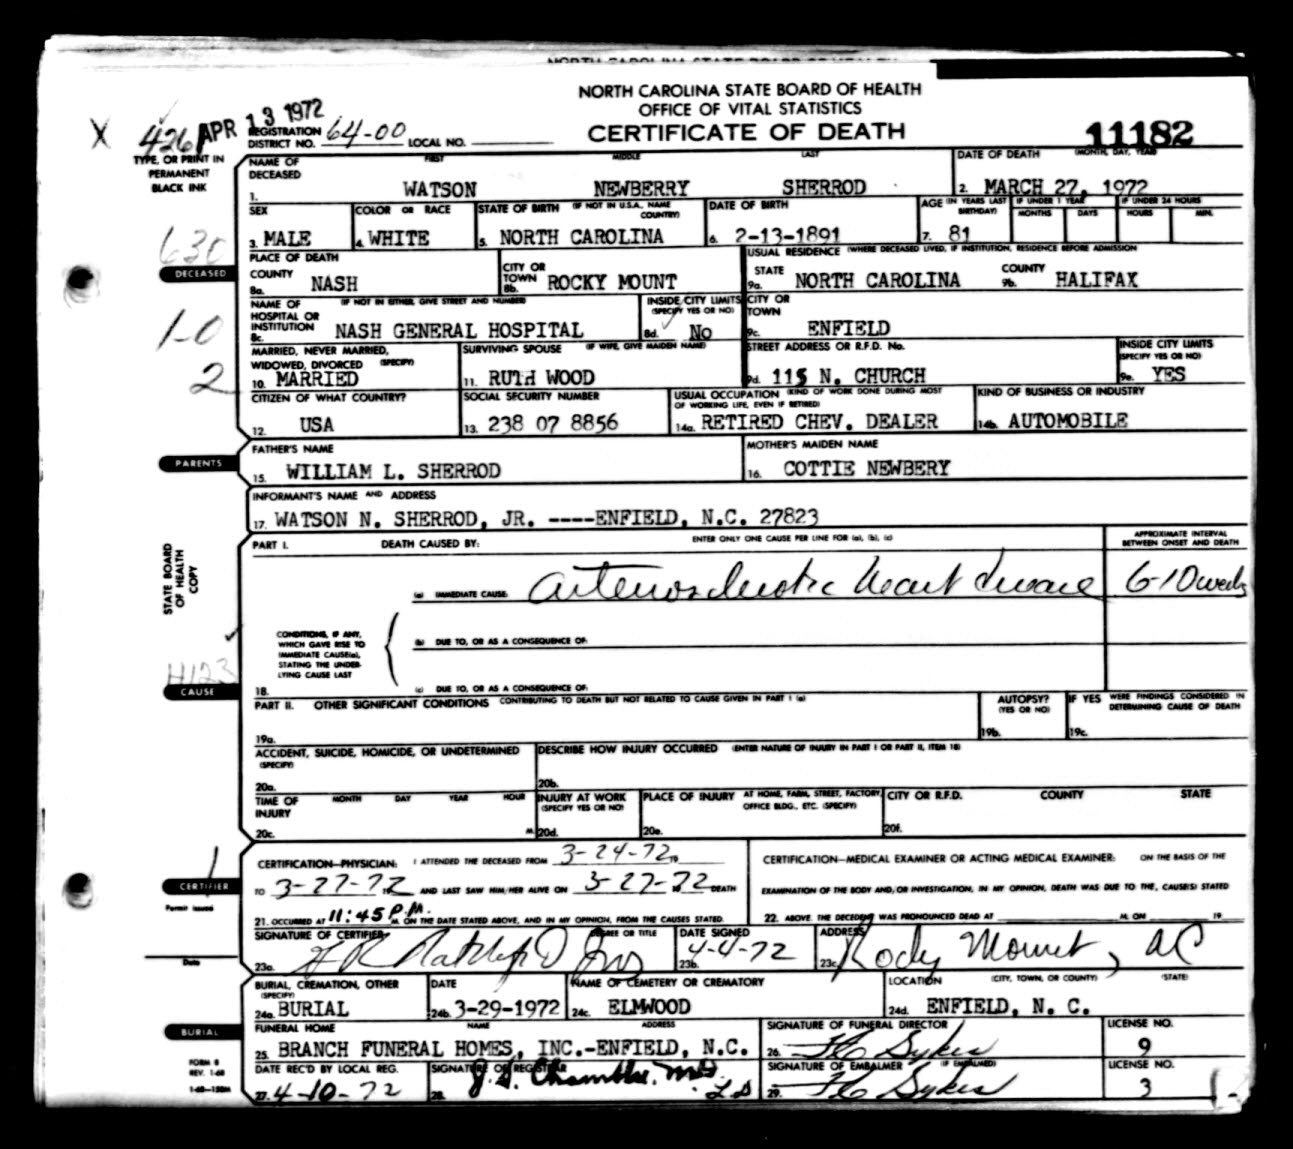 NORTH CAROLINA STATE BOARD OF HEALTH
OFFICE OF VITAL STATISTICS
CERTIFICATE OF DEATH
11182
X 426 APR 13 1972
REGISTRATION DISTRICT NO. 64-00 LOCAL NO.
TYPE, OR PRINT IN
PERMANENT
BLACK INK
NAME OF DECEASED FIRST MIDDLE LAST
1. WATSON NEWBERRY SHERROD
DATE OF DEATH (MONTH, DAY, YEAR)
2. MARCH 27, 1972
SEX
3. MALE
COLOR OR RACE
4. WHITE
STATE OF BIRTH (IF NOT IN U.S.A., NAME COUNTRY)
5. NORTH CAROLINA
DATE OF BIRTH
6. 2-13-1891
AGE (IN YEARS LAST BIRTHDAY)
7. 81
IF UNDER 1 YEAR
MONTHS DAYS
IF UNDER 24 HOURS
HOURS MIN.
630
DECEASED
PLACE OF DEATH
COUNTY
8a. NASH
CITY OR TOWN
8b. ROCKY MOUNT
USUAL RESIDENCE (WHERE DECEASED LIVED, IF INSTITUTION, RESIDENCE BEFORE ADMISSION
STATE
9a. NORTH CAROLINA
COUNTY
9b. HALIFAX
1-0
NAME OF HOSPITAL OR INSTITUTION (IF NOT IN EITHER, GIVE STREET AND NUMBER)
8c. NASH GENERAL HOSPITAL
INSIDE CITY LIMITS (SPECIFY YES OR NO)
8d. No
CITY OR TOWN
9c. ENFIELD
2
MARRIED, NEVER MARRIED, WIDOWED, DIVORCED (SPECIFY)
10. MARRIED
SURVIVING SPOUSE (IF WIFE, GIVE MAIDEN NAME)
11. RUTH WOOD
STREET ADDRESS OR R.F.D. No.
9d. 115 N. CHURCH
INSIDE CITY LIMITS (SPECIFY YES OR NO)
9e. YES
CITIZEN OF WHAT COUNTRY?
12. USA
SOCIAL SECURITY NUMBER
13. 238 07 8856
USUAL OCCUPATION (KIND OF WORK DONE DURING MOST OF WORKING LIFE, EVEN IF RETIRED)
14a. RETIRED CHEV. DEALER
KIND OF BUSINESS OR INDUSTRY
14b. AUTOMOBILE
PARENTS
FATHER'S NAME
15. WILLIAM L. SHERROD
MOTHER'S MAIDEN NAME
16. COTTIE NEWBERY
INFORMANT'S NAME AND ADDRESS
17. WATSON N. SHERROD, JR. ----ENFIELD, N.C. 27823
STATE BOARD
OF HEALTH
COPY
PART I. DEATH CAUSED BY: ENTER ONLY ONE CAUSE PER LINE FOR (a), (b), (c)
APPROXIMATE INTERVAL
BETWEEN ONSET AND DEATH
(a) IMMEDIATE CAUSE: arteriosclerotic heart disease 6-10 weeks
CONDITIONS, IF ANY,
WHICH GAVE RISE TO
IMMEDIATE CAUSE(a),
STATING THE UNDER-
LYING CAUSE LAST
(b) DUE TO, OR AS A CONSEQUENCE OF:
(c) DUE TO, OR AS A CONSEQUENCE OF:
18.
H123
CAUSE
PART II. OTHER SIGNIFICANT CONDITIONS CONTRIBUTING TO DEATH BUT NOT RELATED TO CAUSE GIVEN IN PART I (a)
19a.
AUTOPSY? (YES OR NO)
19b.
IF YES WERE FINDINGS CONSIDERED IN DETERMINING CAUSE OF DEATH
19c.
ACCIDENT, SUICIDE, HOMICIDE, OR UNDETERMINED (SPECIFY)
20a.
DESCRIBE HOW INJURY OCCURRED (ENTER NATURE OF INJURY IN PART I OR PART II, ITEM 18)
20b.
TIME OF INJURY MONTH DAY YEAR HOUR
20c. M.
INJURY AT WORK (SPECIFY YES OR NO)
20d.
PLACE OF INJURY AT HOME, FARM, STREET, FACTORY, OFFICE BLDG., ETC. (SPECIFY)
20e.
CITY OR R.F.D. COUNTY STATE
20f.
1
CERTIFIER
Permit issued
Date
CERTIFICATION—PHYSICIAN: I ATTENDED THE DECEASED FROM 3-24-72 19
TO 3-27-72 19 AND LAST SAW HIM/HER ALIVE ON 3-27-72 DEATH
21. OCCURRED AT 11:45 P.M. M. ON THE DATE STATED ABOVE, AND IN MY OPINION, FROM THE CAUSES STATED.
CERTIFICATION—MEDICAL EXAMINER OR ACTING MEDICAL EXAMINER: ON THE BASIS OF THE
EXAMINATION OF THE BODY AND/OR INVESTIGATION, IN MY OPINION, DEATH WAS DUE TO THE, CAUSE(S) STATED
22. ABOVE. THE DECEDENT WAS PRONOUNCED DEAD AT M. ON 19
SIGNATURE OF CERTIFIER DEGREE OR TITLE
23a.
DATE SIGNED
23b. 4-4-72
ADDRESS
23c. Rocky Mount, NC
BURIAL, CREMATION, OTHER (SPECIFY)
24a. BURIAL
DATE
24b. 3-29-1972
NAME OF CEMETERY OR CREMATORY
24c. ELMWOOD
LOCATION (CITY, TOWN, OR COUNTY) (STATE)
24d. ENFIELD, N. C.
BURIAL
FUNERAL HOME NAME ADDRESS
25. BRANCH FUNERAL HOMES, INC.-ENFIELD, N.C.
SIGNATURE OF FUNERAL DIRECTOR
26. Sykes
LICENSE NO.
9
FORM 8
REV. 1-68
1-68—150M
DATE REC'D BY LOCAL REG.
27. 4-10-72
SIGNATURE OF REGISTRAR
28. M.D.
SIGNATURE OF EMBALMER (IF EMBALMED)
29. Sykes
LICENSE NO.
3